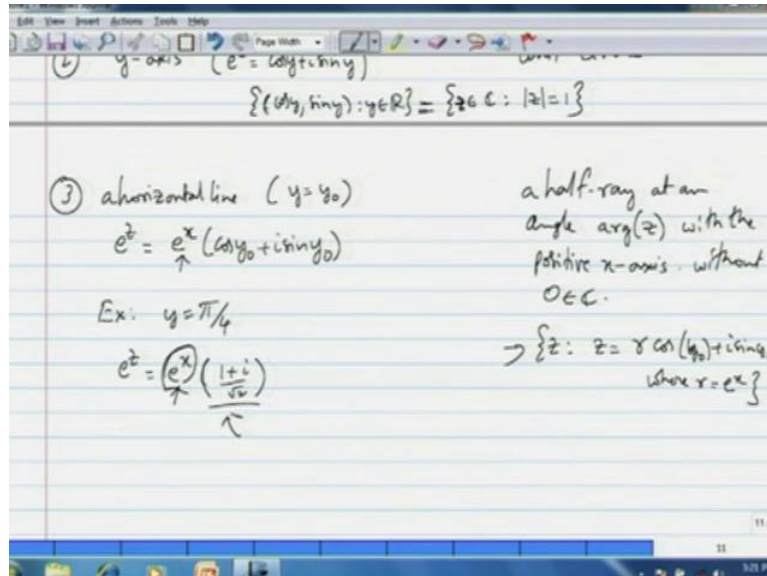 Edit View Insert Actions Tools Help
Page Width
② y-axis (e = cosy+isiny)
{(cosy, siny) : y∈R} = {z∈C : |z|=1}
③ a horizontal line (y=y₀)
e^z = e^x (cosy₀+isiny₀)
Ex: y=π/4
e^z = e^x ((1+i)/√2)
a half-ray at an
angle arg(z) with the
positive x-axis. without
0∈C.
→ {z: z= r cos(y₀)+isiny
where r=e^x}
11
11
3:25 P